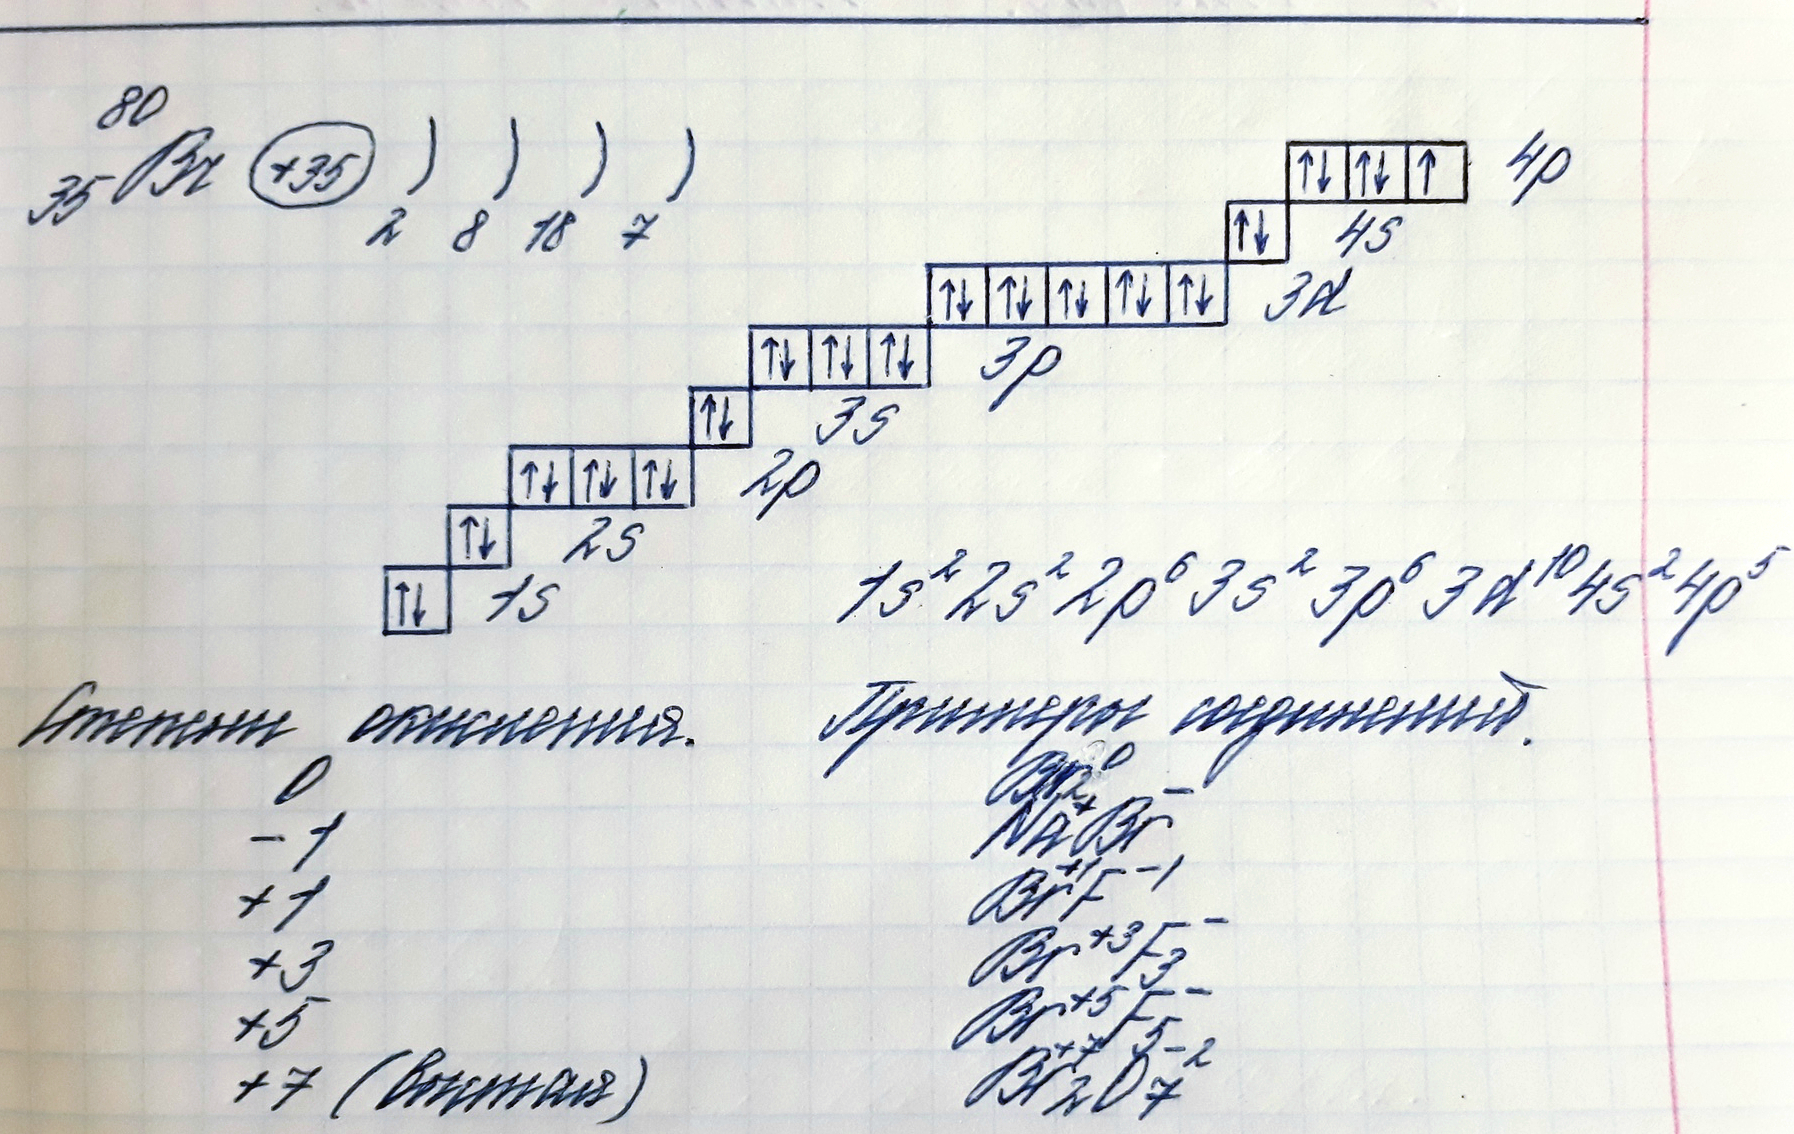 80
35 Br +35 ) ) ) )
2 8 18 7
↑↓ ↑↓ ↑ 4p
↑↓ 4s
↑↓ ↑↓ ↑↓ ↑↓ ↑↓ 3d
↑↓ ↑↓ ↑↓ 3p
↑↓ 3s
↑↓ ↑↓ ↑↓ 2p
↑↓ 2s
↑↓ 1s
1s² 2s² 2p⁶ 3s² 3p⁶ 3d¹⁰ 4s² 4p⁵
Степени окисления. Примеры соединений.
0 Br₂⁰
-1 Na⁺Br⁻
+1 Br⁺¹F⁻¹
+3 Br⁺³F₃⁻
+5 Br⁺⁵F₅⁻
+7 (высшая) Br₂⁺⁷O₇⁻²